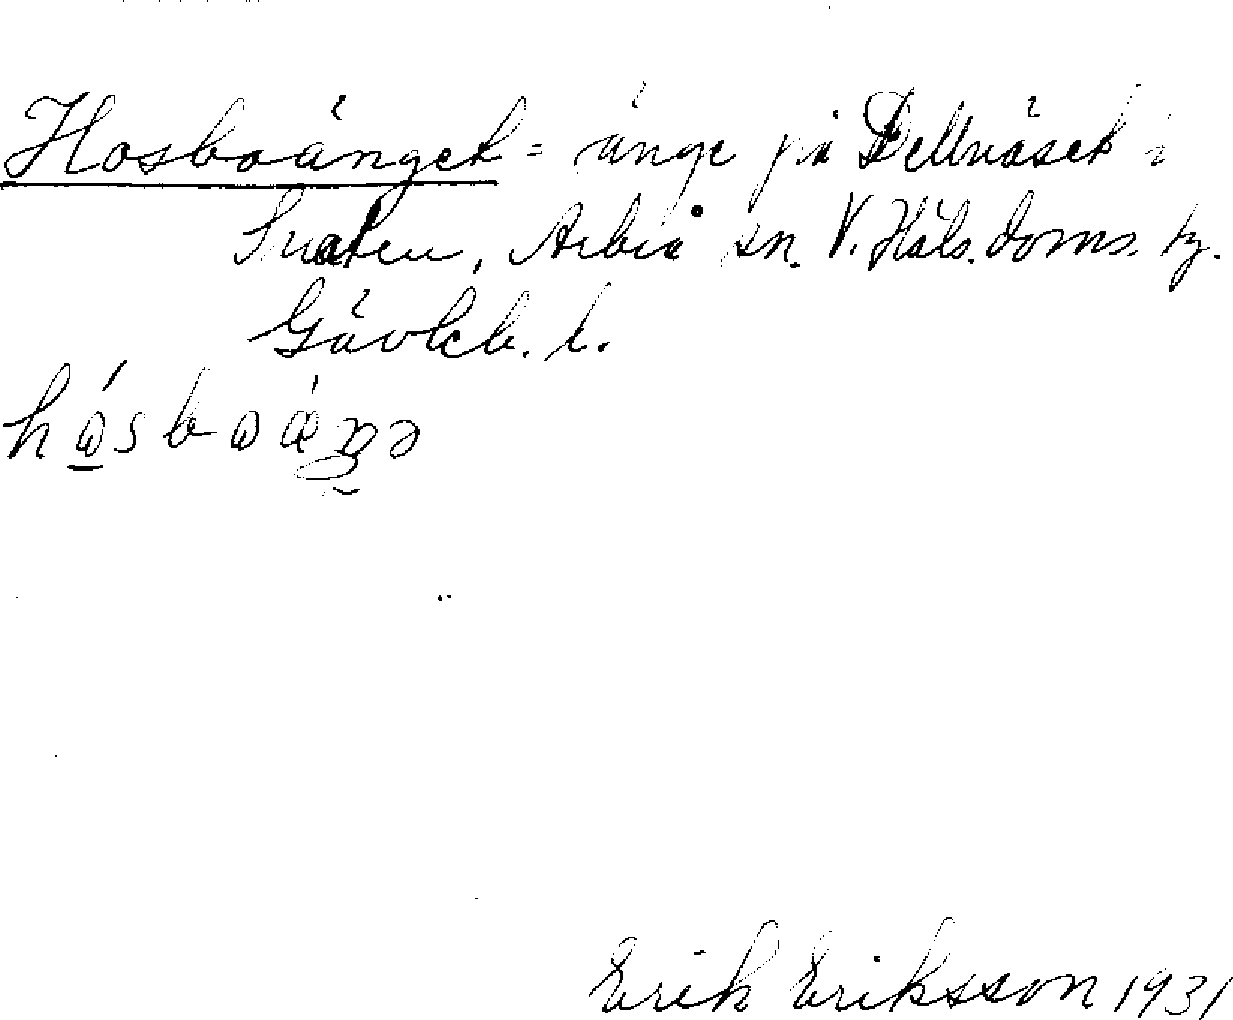 Hosboänget = änge på Dellnäset i
Snaten, Arbrå sn. V. Häls. doms. tg.
Gävleb. l.
Erik Eriksson 1931